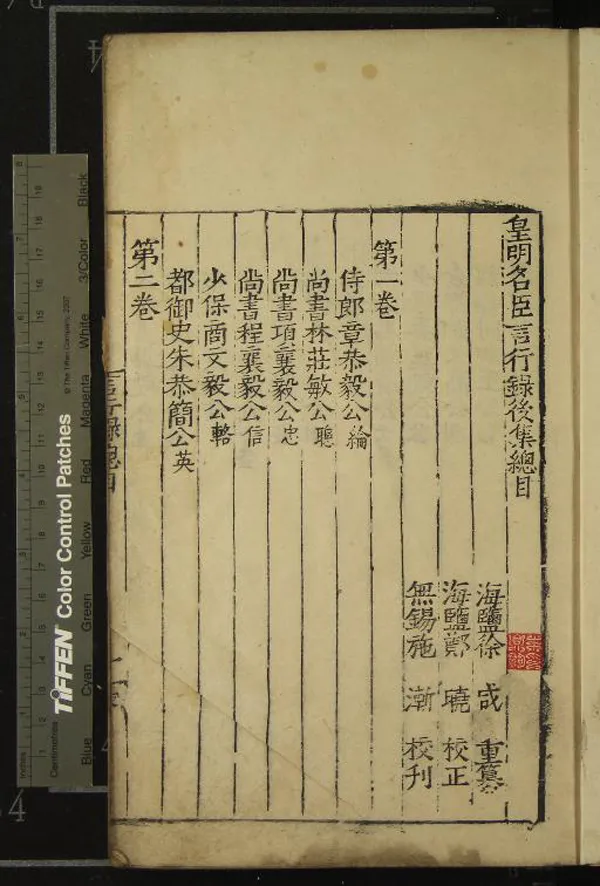 皇明名臣言行録後集總目
海鹽徐 咸 重纂
海鹽鄭 曉 校正
無錫施 漸 校刊
第一卷
侍郎章恭毅公綸
尚書林莊敏公聰
尚書項襄毅公忠
尚書程襄毅公信
少保商文毅公輅
都御史朱恭簡公英
第二卷
言行錄總目
TIFFEN Color Control Patches
© The Tiffen Company, 2007
Inches
Centimetres
Blue Cyan Green Yellow Red Magenta White 3/Color Black